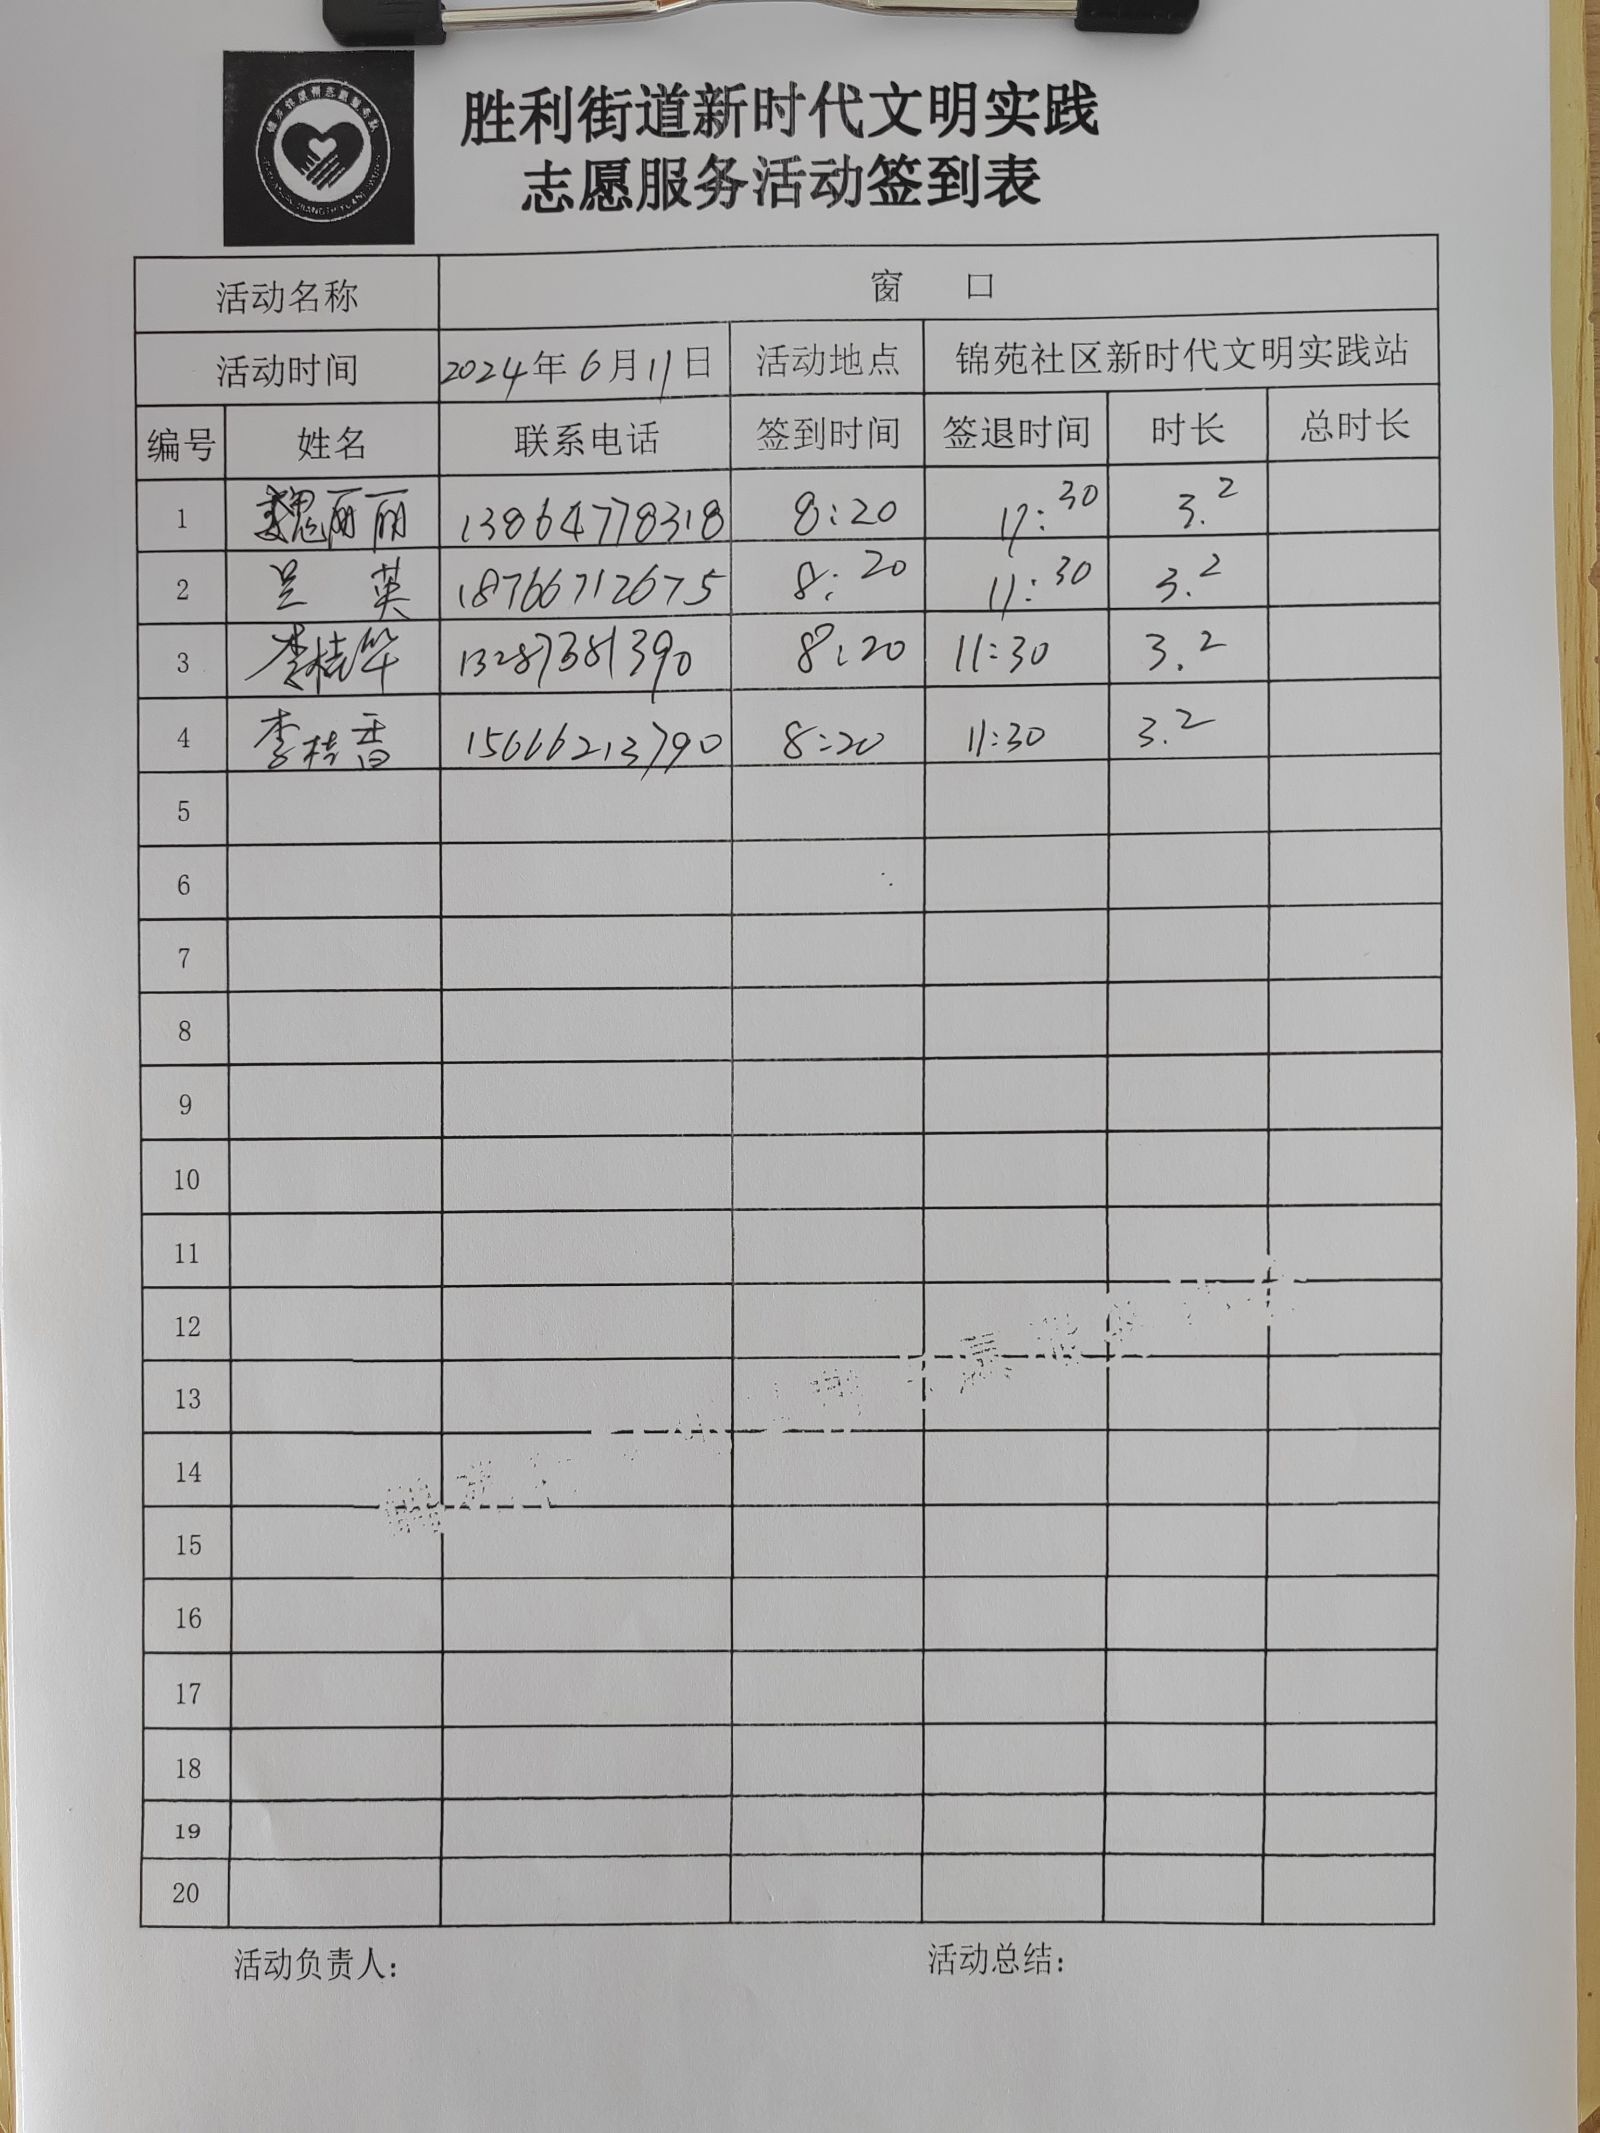 胜利街道新时代文明实践
志愿服务活动签到表
活动名称 窗 口
活动时间 2024年6月11日 活动地点 锦苑社区新时代文明实践站
编号 姓名 联系电话 签到时间 签退时间 时长 总时长
1 魏丽丽 13864778318 8:20 11:30 3.2
2 吴 英 18766712675 8:20 11:30 3.2
3 李桂华 13287381390 8:20 11:30 3.2
4 李桂香 15666213790 8:20 11:30 3.2
5
6
7
8
9
10
11
12
13
14
15
16
17
18
19
20
活动负责人: 活动总结: